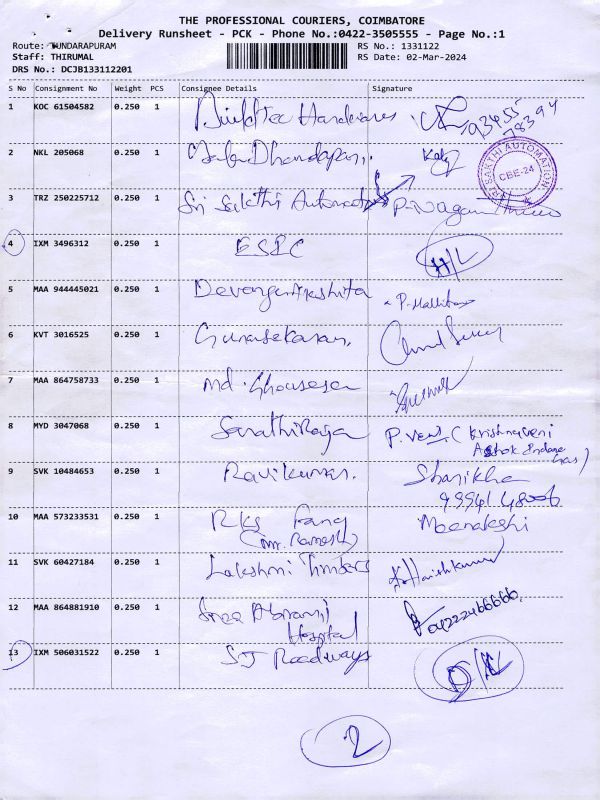 THE PROFESSIONAL COURIERS, COIMBATORE
Delivery Runsheet - PCK - Phone No.:0422-3505555 - Page No.:1
Route: SUNDARAPURAM RS No.: 1331122
Staff: THIRUMAL RS Date: 02-Mar-2024
DRS No.: DCJB133112201
S No Consignment No Weight PCS Consignee Details Signature
1 KOC 61504582 0.250 1 Hardwares 93455
78394
2 NKL 205068 0.250 1 Dhandapani.
SRI SAKTHI AUTOMATION
CBE-24
3 TRZ 250225712 0.250 1 Sri Sakthi Automation
4 IXM 3496312 0.250 1
5 MAA 944445021 0.250 1 Devanganakshita P. Mallika
6 KVT 3016525 0.250 1 Gunasekaran.
7 MAA 864758733 0.250 1 Md. Ghouse
8 MYD 3047068 0.250 1 SarathiRaja P. (Krishnaveni
Ashok Indane
Gas)
9 SVK 10484653 0.250 1 Ravikumar. Sharikha
10 MAA 573233531 0.250 1 RKS Fang Meenakshi
(Mr. Ramesh)
11 SVK 60427184 0.250 1 Lakshmi Timbers Harishkumar
12 MAA 864881910 0.250 1 Sree Abirami 04222466666.
Hospital
13 IXM 506031522 0.250 1 ST Roadways
2